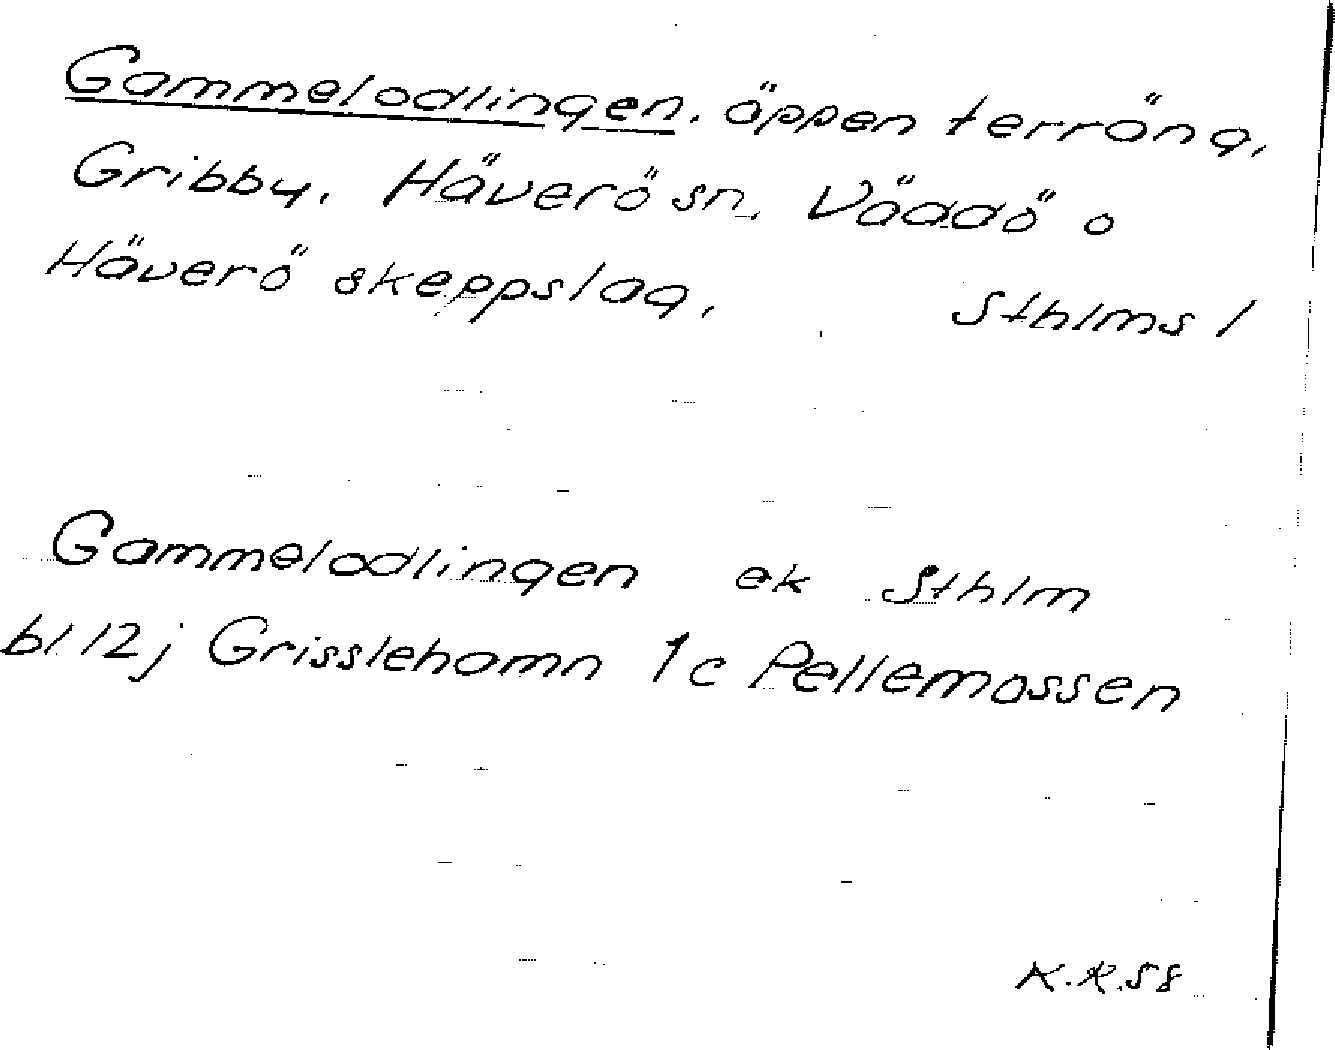 Gammelodlingen, öppen terräng,
Gribby, Häverö sn, Väddö o
Häverö skeppslag. Sthlms l
Gammelodlingen ek Sthlm
bl 12j Grisslehamn 1c Pellemossen
K.R.58